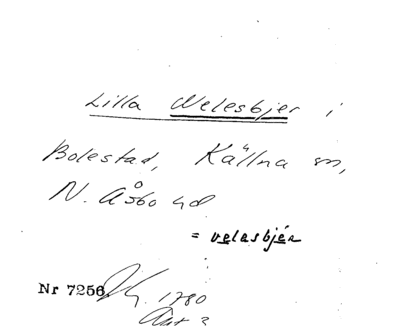 Lilla Velesbjer i
Bolestad, Källna sn,
N. Åsbo hd
= velesbjér
Nr 7256
1780
Akt 3